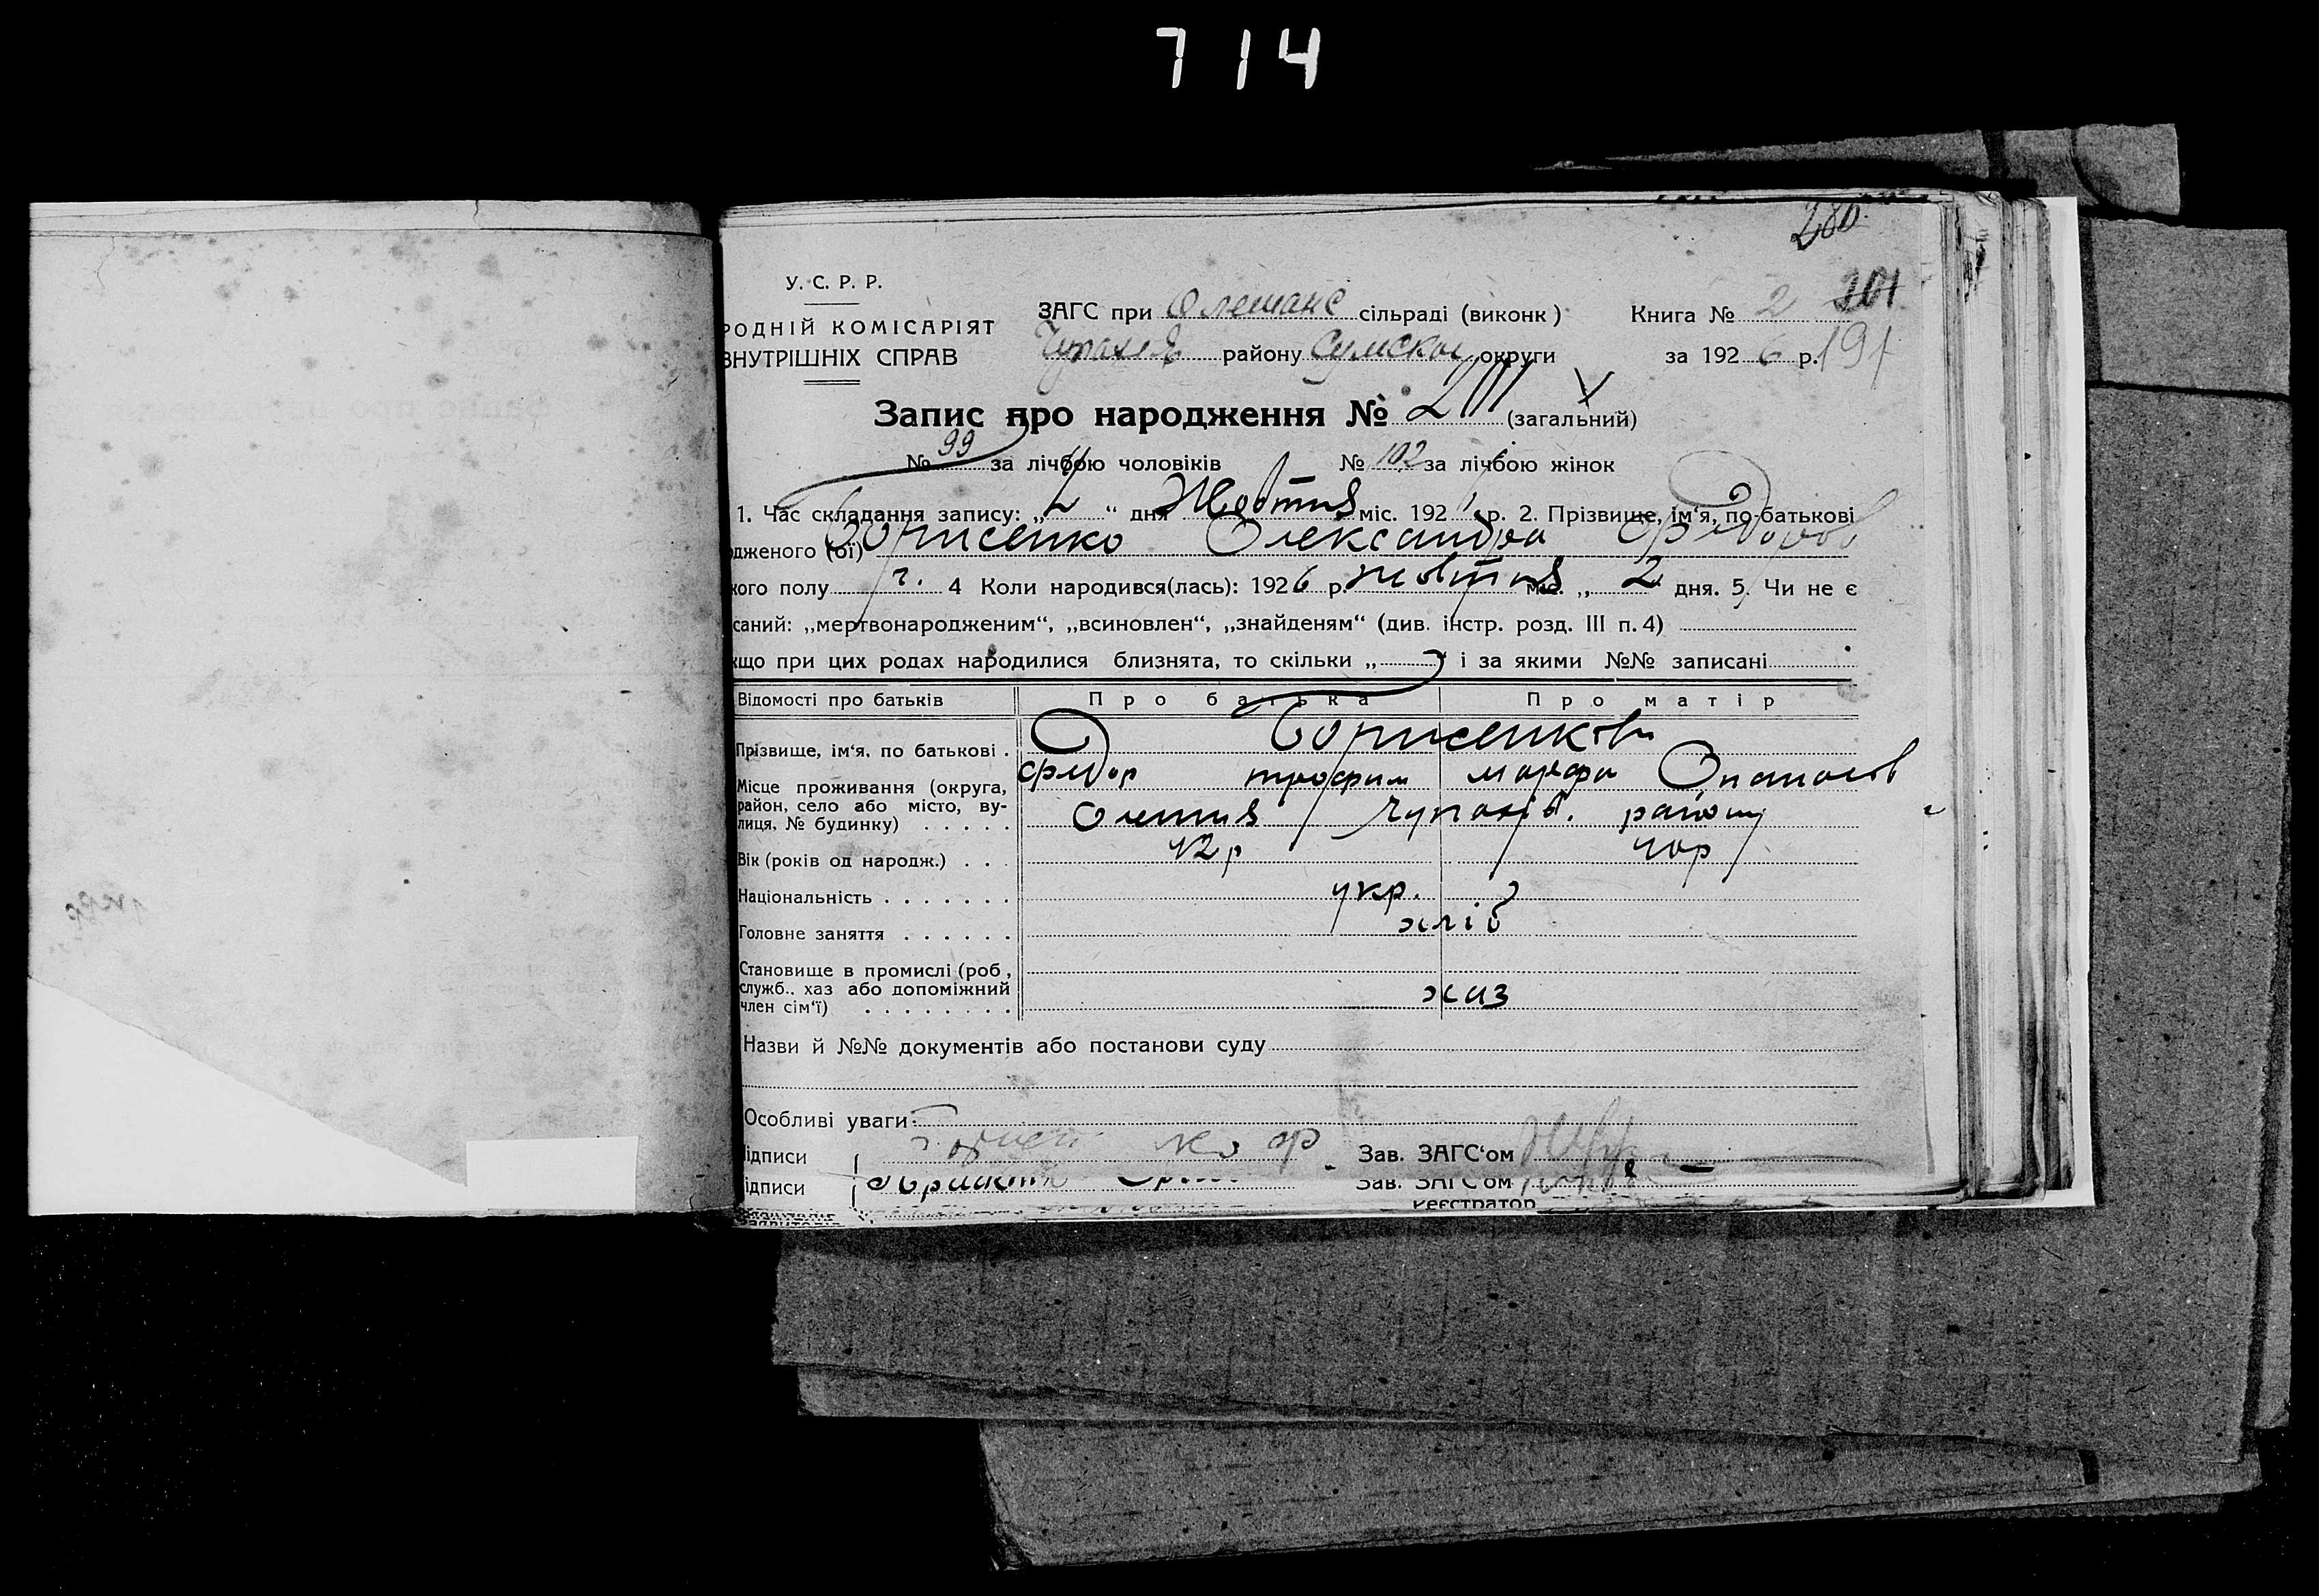 714
280
У. С. Р. Р.
РОДНІЙ КОМІСАРІЯТ
ВНУТРІШНІХ СПРАВ
ЗАГС при Олешанс сільраді (виконк)
Книга № 2 201
Чупахів району Сумской округи
за 1926 р. 191
Запис про народження № 201 (загальний)
№ 99 за лічбою чоловіків № 102 за лічбою жінок
1. Час складання запису: „ “ дня Жовтня міс. 192 р. 2. Прізвище, ім‘я, по-батькові
дженого (ої) Борисенко Олександра Федоров
кого полу ч. 4 Коли народився(лась): 1926 р. жовтня міс. „ 2 дня. 5, Чи не є
саний: „мертвонародженим“, „всиновлен“, „знайденям“ (див. інстр. розд. III п. 4)
кщо при цих родах народилися близнята, то скільки „ “ і за якими №№ записані
Відомості про батьків Про батька Про матір
Прізвище, ім‘я, по батькові . Борисенков
Федор трофим марфа Опанасов
Місце проживання (округа, район, село або місто, вулиця, № будинку) . . . . . Олешня Чупахів. району
Вік (років од народж.) . . . 42 р 40р
Національність . . . . . . . укр.
Головне заняття . . . . . . хліб
Становище в промислі (роб, служб., хаз або допоміжний член сім‘ї) . . . . . . . . хаз
Назви й №№ документів або постанови суду
Особливі уваги
ідписи Зав. ЗАГС‘ом
ідписи Зав. ЗАГС‘ом
Реєстратор